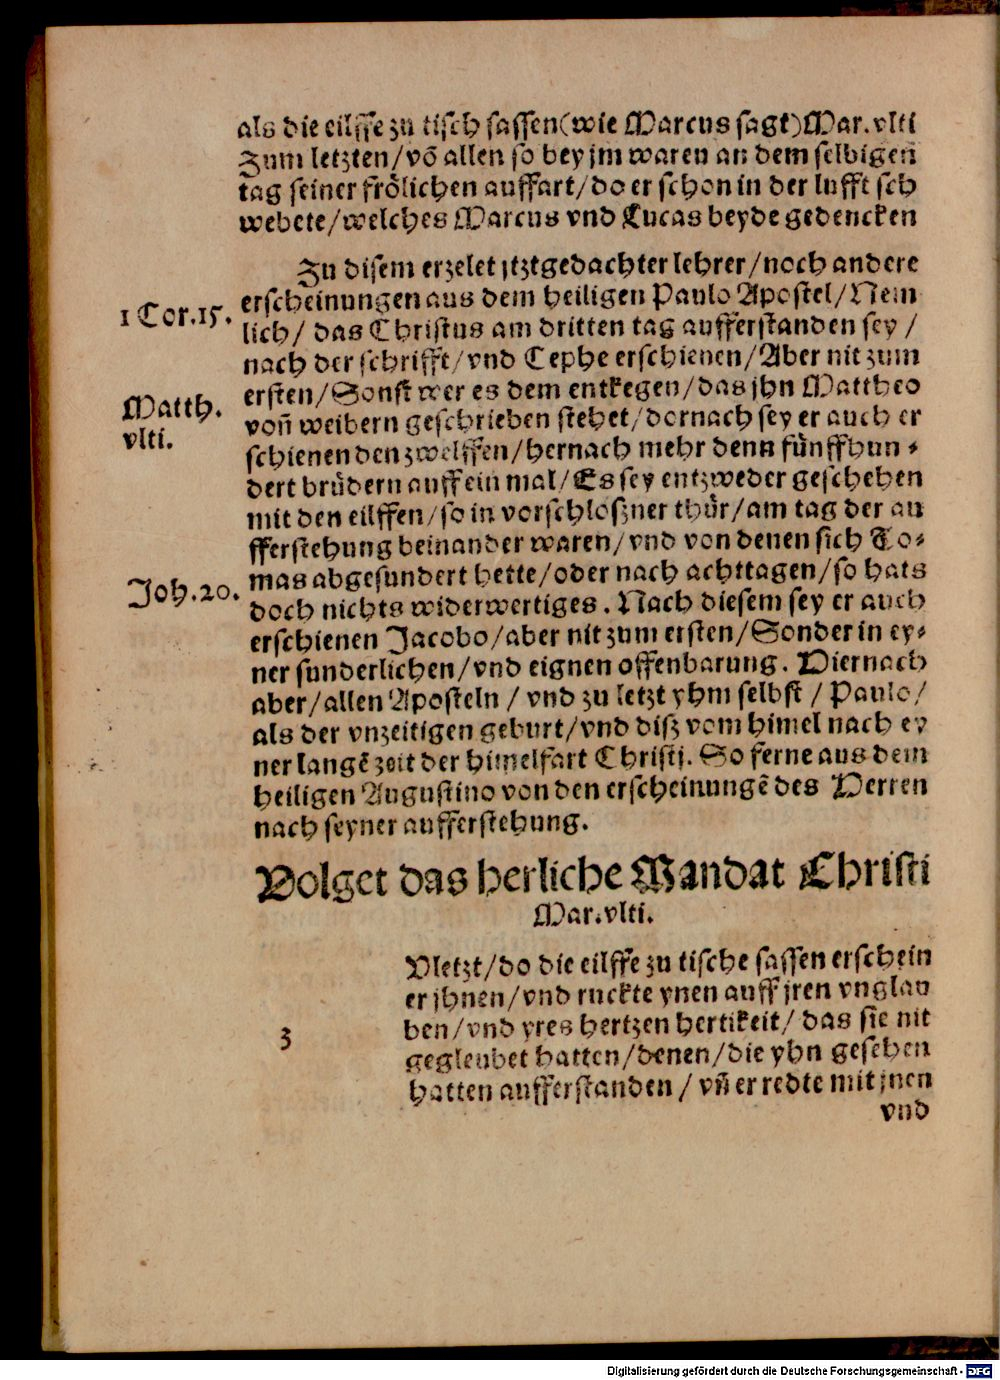 als die eilffe zu tisch sassen(wie Marcus sagt)Mar.vlti
Zum letzten/võ allen so bey jm waren an dem selbigen
tag seiner frölichen auffart/do er schon in der lufft sch
webete/welches Marcus vnd Lucas beyde gedencken
Zu disem erzelet jtztgedachter lehrer/noch andere
1 Cor.15. erscheinungen aus dem heiligen Paulo Apostel/Nem
lich/ das Christus am dritten tag aufferstanden sey /
nach der schrifft/vnd Cephe erschienen/Aber nit zum
Matth. ersten/Sonst wer es dem entkegen/das jhn Mattheo
vlti. voñ weibern geschrieben stehet/dornach sey er auch er
schienen den zwelffen/hernach mehr denn fünffhun⸗
dert brüdern auff ein mal/Es sey entzweder geschehen
mit den eilffen/so in vorschloßner thür/am tag der au
fferstehung beinander waren/vnd von denen sich To⸗
Joh.20. mas abgesundert hette/oder nach achttagen/so hats
doch nichts widerwertiges. Nach diesem sey er auch
erschienen Jacobo/aber nit zum ersten/Sonder in ey⸗
ner sunderlichen/vnd eignen offenbarung. Diernach
aber/allen Aposteln / vnd zu letzt yhm selbst / Paulo/
als der vnzeitigen geburt/vnd diß vom himel nach ey
ner langẽ zeit der himelfart Christj. So ferne aus dem
heiligen Augustino von den erscheinungẽ des Herren
nach seyner aufferstehung.
Volget das herliche Mandat Christi
Mar.vlti.
Vletzt/do die eilffe zu tische sassen erschein
er jhnen/vnd ruckte ynen auff jren vnglau
z ben/vnd yres hertzen hertikeit/ das sie nit
gegleubet hatten/denen/die yhn gesehen
hatten aufferstanden / vñ er redte mit jnen
vnd
Digitalisierung gefördert durch die Deutsche Forschungsgemeinschaft - DFG